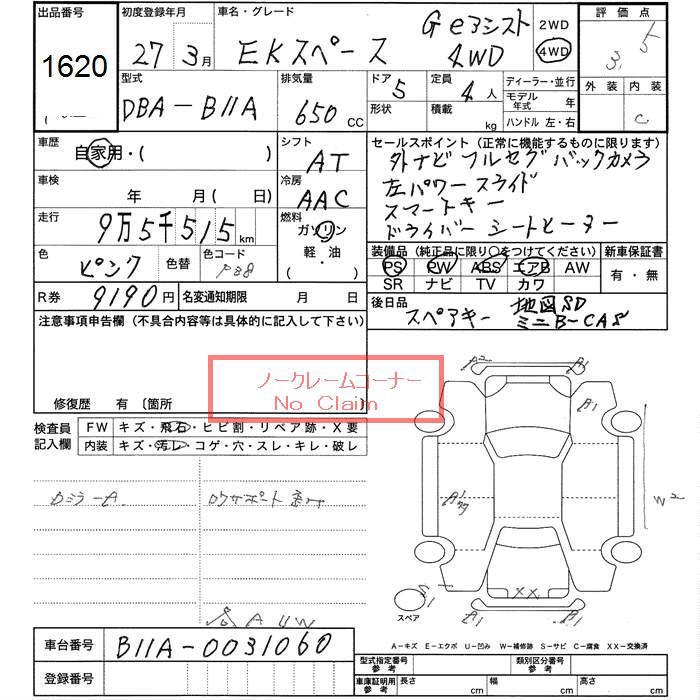 出品番号
1620
初度登録年月
27年3月
車名・グレード
EKスペース
G eアシスト
4WD
2WD
4WD
評価点
3.5
外装 内装
C
型式
DBA-B11A
排気量
650 CC
ドア
5
形状
定員
4人
積載
kg
ディーラー・並行
モデル年式 年
ハンドル 左・右
車歴
自家用・( )
シフト
AT
車検
年 月(日)
冷房
AAC
走行
9万5千515km
燃料
ガソリン
軽・油
( )
色
ピンク
色替
色コード
P38
R券
9190円
名変通知期限 月 日
セールスポイント(正常に機能するものに限ります)
外ナビ フルセグ バックカメラ
左パワースライド
スマートキー
ドライバーシートヒーター
装備品(純正品に限り○をつけてください)
PS PW ABS エアB AW
SR ナビ TV カワ
新車保証書
有・無
後日品
スペアキー 地図SD
ミニB-CAS
注意事項申告欄(不具合内容等は具体的に記入して下さい)
ノークレームコーナー
No Claim
修復歴 有〔箇所 〕
検査員記入欄
FW キズ・飛石・ヒビ割・リペア跡・X要
内装 キズ・汚レ・コゲ・穴・スレ・キレ・破レ
A2
A1
A1
A1
W2
XX
A1
A1
スペア
A-キズ E-エクボ U-凹み W-補修跡 S-サビ C-腐食 XX-交換済
車台番号
B11A-0031060
登録番号
型式指定番号 参考
類別区分番号 参考
車庫証明用 参考
長さ cm
幅 cm
高さ cm